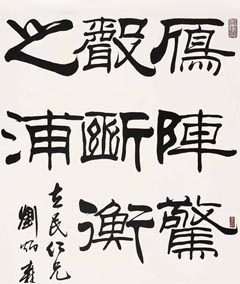 鴈陣驚
聲斷衡
之浦
民仁兄
劉炳森